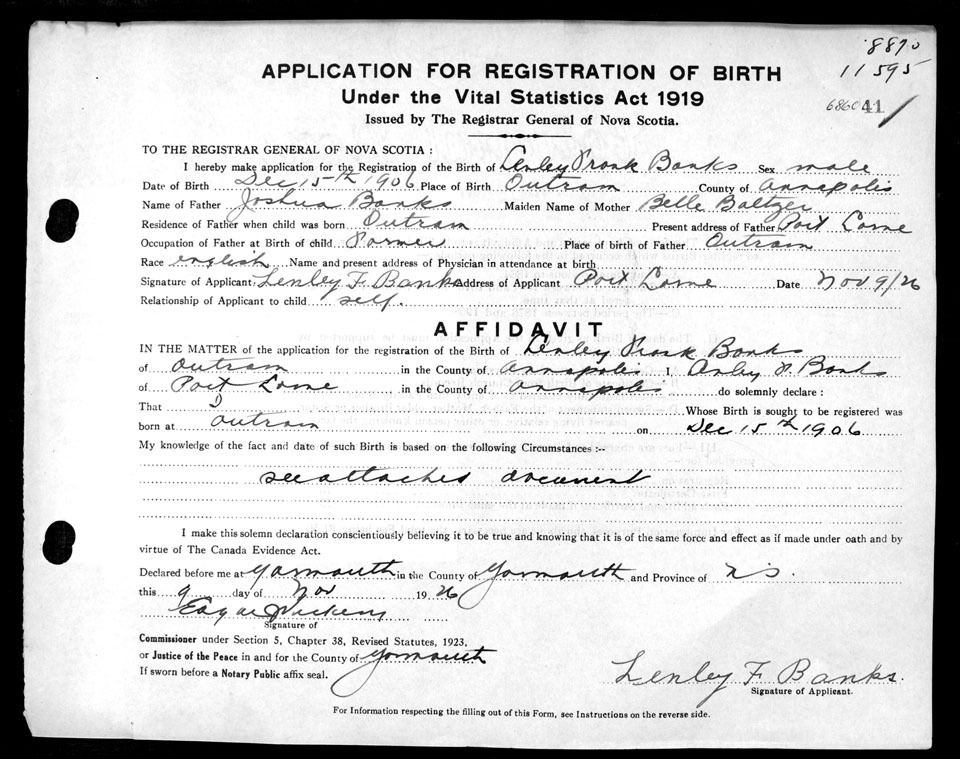 8870
11595
6860 41
APPLICATION FOR REGISTRATION OF BIRTH
Under the Vital Statistics Act 1919
Issued by The Registrar General of Nova Scotia.
TO THE REGISTRAR GENERAL OF NOVA SCOTIA :
I hereby make application for the Registration of the Birth of Lenley Frank Banks Sex male
Date of Birth Dec 15th 1906 Place of Birth Outram County of Annapolis
Name of Father Joshua Banks Maiden Name of Mother Belle Baltzer
Residence of Father when child was born Outram Present address of Father Port Lorne
Occupation of Father at Birth of child Farmer Place of birth of Father Outram
Race english Name and present address of Physician in attendance at birth
Signature of Applicant Lenley F. Banks Address of Applicant Port Lorne Date Nov 9/26
Relationship of Applicant to child self.
AFFIDAVIT
IN THE MATTER of the application for the registration of the Birth of Lenley Frank Banks
of Outram in the County of Annapolis I, Banks
of Port Lorne in the County of Annapolis do solemnly declare :
That I Whose Birth is sought to be registered was
born at Outram on Dec 15th 1906
My knowledge of the fact and date of such Birth is based on the following Circumstances :--
see attached document
I make this solemn declaration conscientiously believing it to be true and knowing that it is of the same force and effect as if made under oath and by
virtue of The Canada Evidence Act.
Declared before me at Yarmouth in the County of Yarmouth and Province of N.S.
this 9 day of Nov 1926
Signature of
Commissioner under Section 5, Chapter 38, Revised Statutes, 1923,
or Justice of the Peace in and for the County of Yarmouth
If sworn before a Notary Public affix seal.
Lenley F. Banks.
Signature of Applicant.
For Information respecting the filling out of this Form, see Instructions on the reverse side.